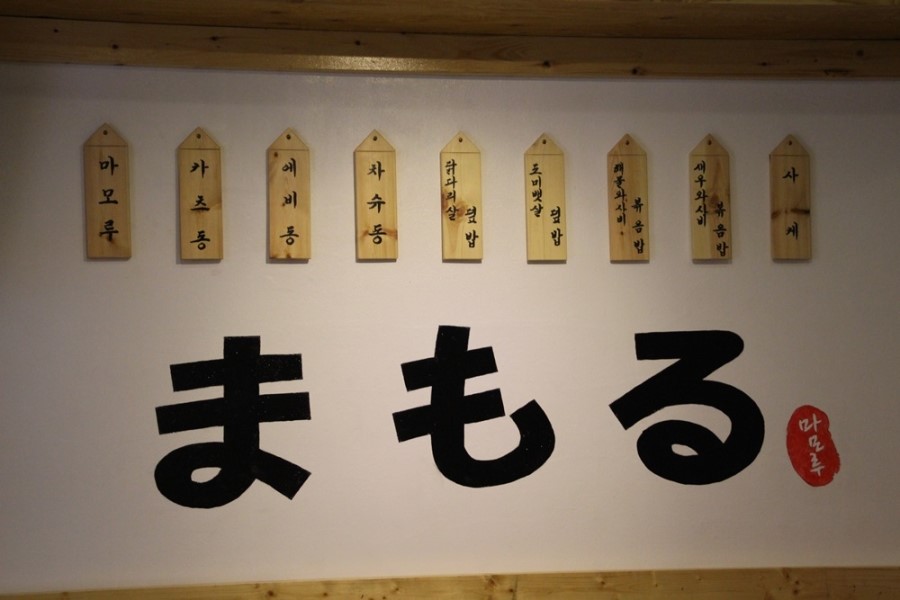 마모루
카츠동
에비동
차슈동
닭다리살
덮밥
도미뱃살
덮밥
해물와사비
볶음밥
새우와사비
볶음밥
사케
まもる
마모루